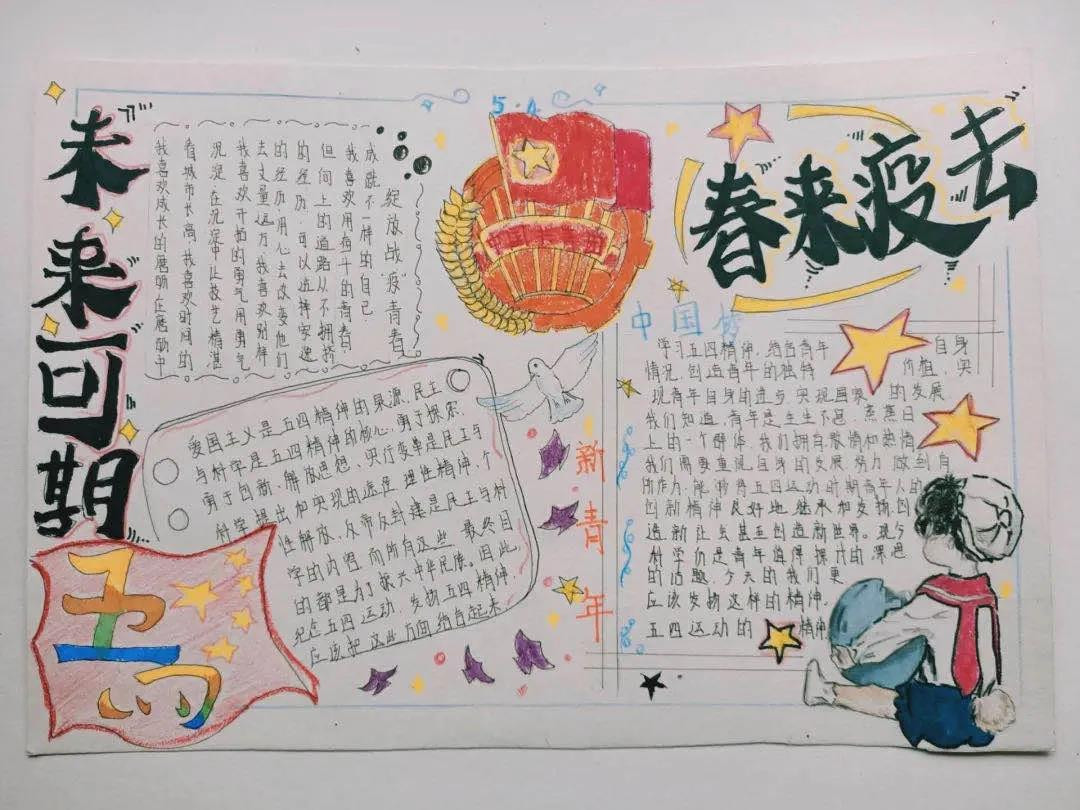 未来可期
5.4
春来疫去
我喜欢成长的磨砺,在磨砺中
看城市长高.我喜欢时间的
沉淀,在沉淀中让技艺精湛
我喜欢开拓的勇气,用勇气
去丈量远方.我喜欢别样
的经历用心去改变他们
的经历,可以选择安逸
但向上的道路从不拥挤
我喜欢用奋斗的青春,
成就不一样的自己.
绽放战疫青春
爱国主义是五四精神的泉源,民主
与科学是五四精神的核心,勇于探索,
勇于创新、解放思想、实行变革是民主与
科学提出和实现的途径,理性精神,个
性解放、反帝反封建是民主与科
学的内涵.而所有这些,最终目
的都是为了振兴中华民族。因此,
纪念五四运动,发扬五四精神,
应该把这些方向结合起来
五四
新青年
中国梦
学习五四精神,结合青年自身
情况,创造青年的独特价值,实
现青年自身的进步,实现国家的发展.
我们知道,青年是生生不息,蒸蒸日
上的一个群体.我们拥有激情和热情
我们需要重视自身的发展,努力做到自
所能力,能够将五四运动时期青年人的
创新精神良好地继承和发扬创
造新社会甚至创造新世界。现今
科学仍是青年值得探讨的深远
的话题,今天的我们更
应该发扬这样的精神,
五四运动的精神